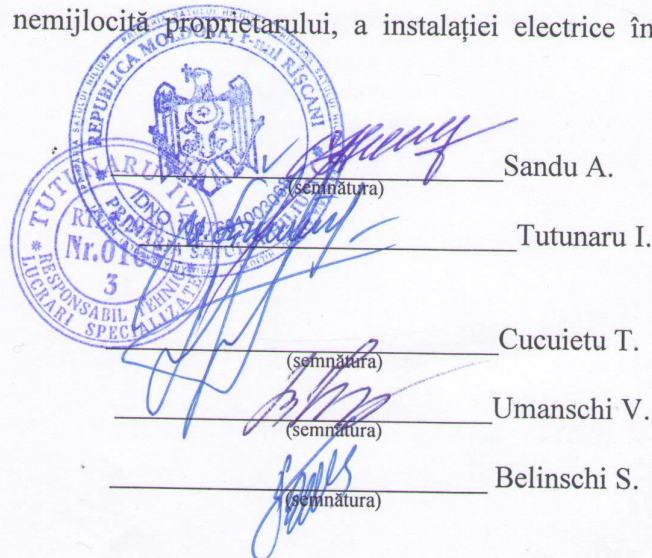 nemijlocită proprietarului, a instalației electrice în
REPUBLICA MOLDOVA, r-nul RÎȘCANI
Sandu A.
(semnătura)
TUTUNARU
Nr.016
3
RESPONSABIL TEHNIC
LUCRĂRI SPECIALIZATE
Tutunaru I.
Cucuietu T.
(semnătura)
Umanschi V.
(semnătura)
Belinschi S.
(semnătura)